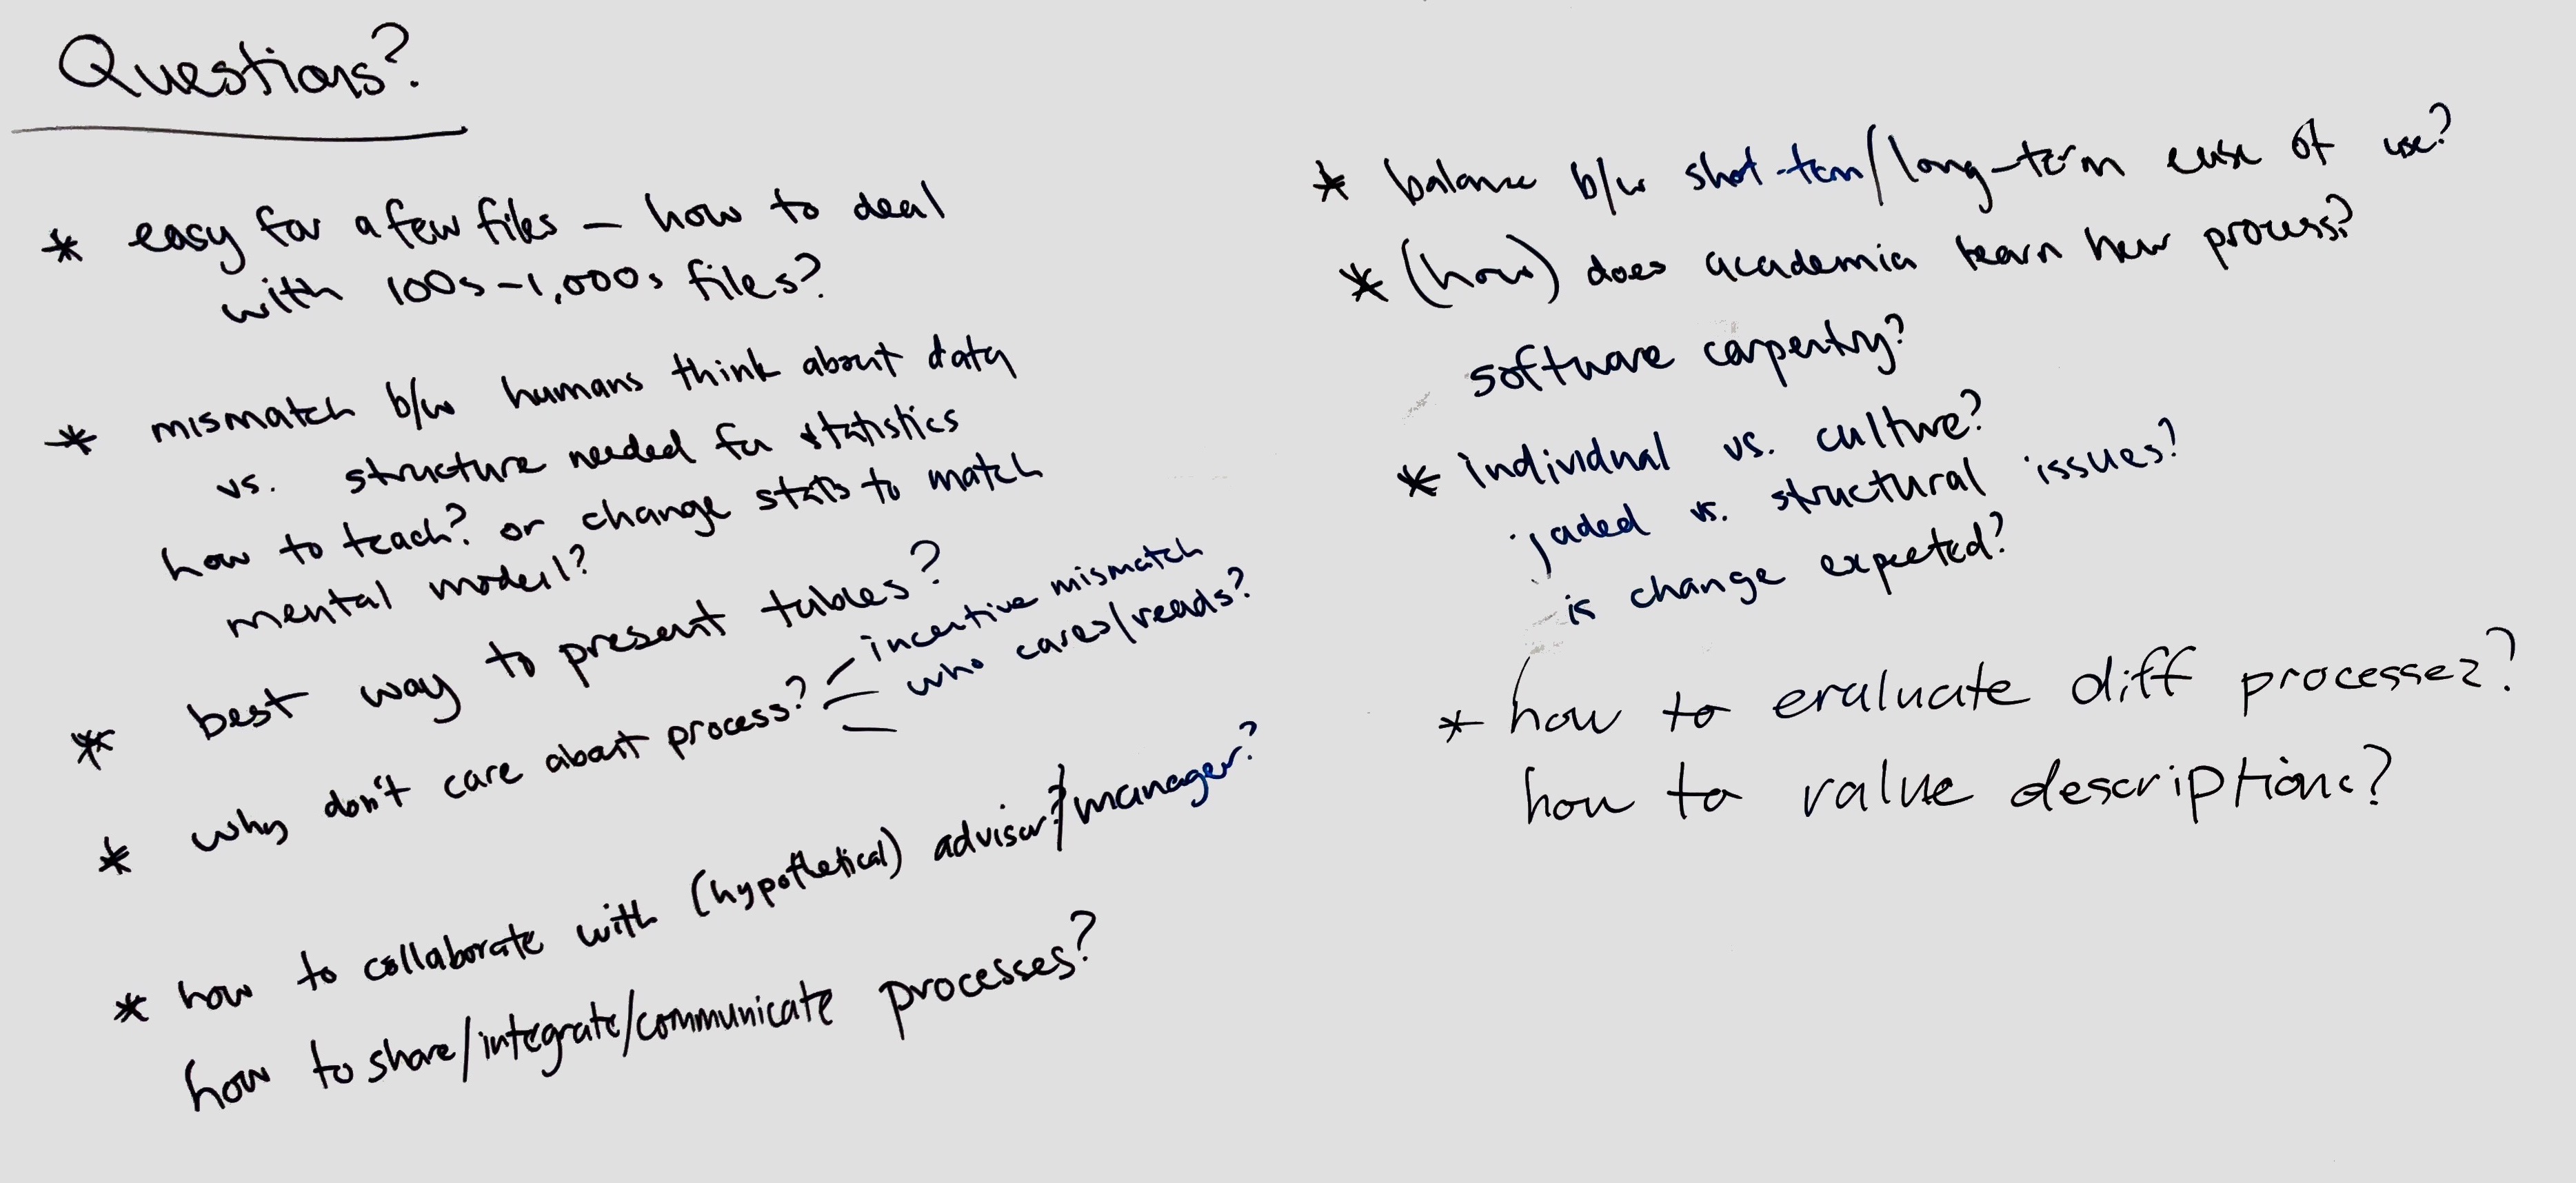 Questions?
* easy for a few files – how to deal
with 100s-1,000s files?
* mismatch b/w humans think about data
vs. structure needed for statistics
how to teach? or change stats to match
mental model?
* best way to present tables?
* why don't care about process?
incentive mismatch
who cares/reads?
* how to collaborate with (hypothetical) advisor?/manager?
how to share/integrate/communicate processes?
* balance b/w short-term/long-term ease of use?
* (how) does academia learn new process?
software carpentry?
* individual vs. culture?
jaded vs. structural issues?
is change expected?
* how to evaluate diff processes?
how to value descriptions?